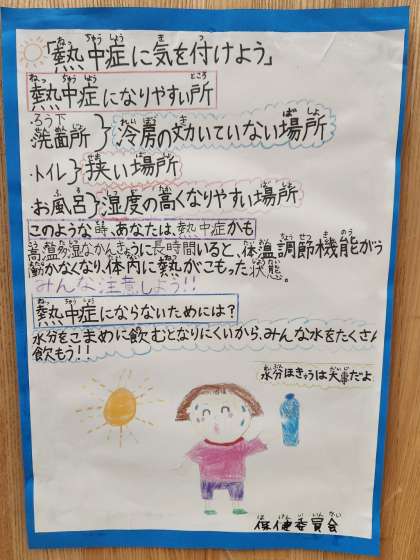 「熱中症に気を付けよう」
熱中症になりやすい所
・ろう下
洗面所 } 冷房の効いていない場所
・トイレ } 狭い場所
・お風呂 } 湿度の高くなりやすい場所
このような時、あなたは、熱中症かも
高温多湿なかんきょうに長時間いると、体温調節機能がう
動かなくなり、体内に熱がこもった状態。
みんな注意しよう!!
熱中症にならないためには?
水分をこまめに飲むとなりにくいから、みんな水をたくさん
飲もう!!
水分ほきゅうは大事だよ
保健委員会